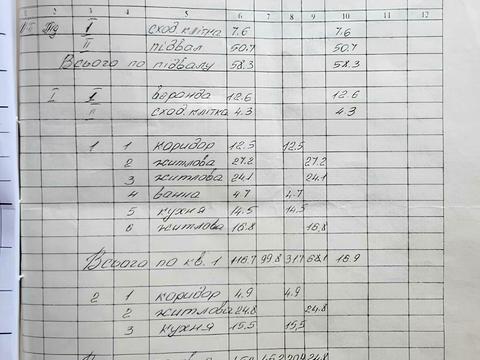 1 2 3 4 5 6 7 8 9 10 11 12
Під I сход. клітка 7.6 7.6
II підвал 50.7 50.7
Всього по підвалу 58.3 58.3
I I веранда 12.6 12.6
II сход. клітка 4.3 4.3
1 1 коридор 12.5 12.5
2 житлова 27.2 27.2
3 житлова 24.1 24.1
4 ванна 4.7 4.7
5 кухня 14.5 14,5
6 житлова 16.8 16,8
Всього по кв. 1 116.7 99.8 31.7 68.1 16.9
2 1 коридор 4.9 4.9
2 житлова 24.8 24.8
3 кухня 15.5 15,5